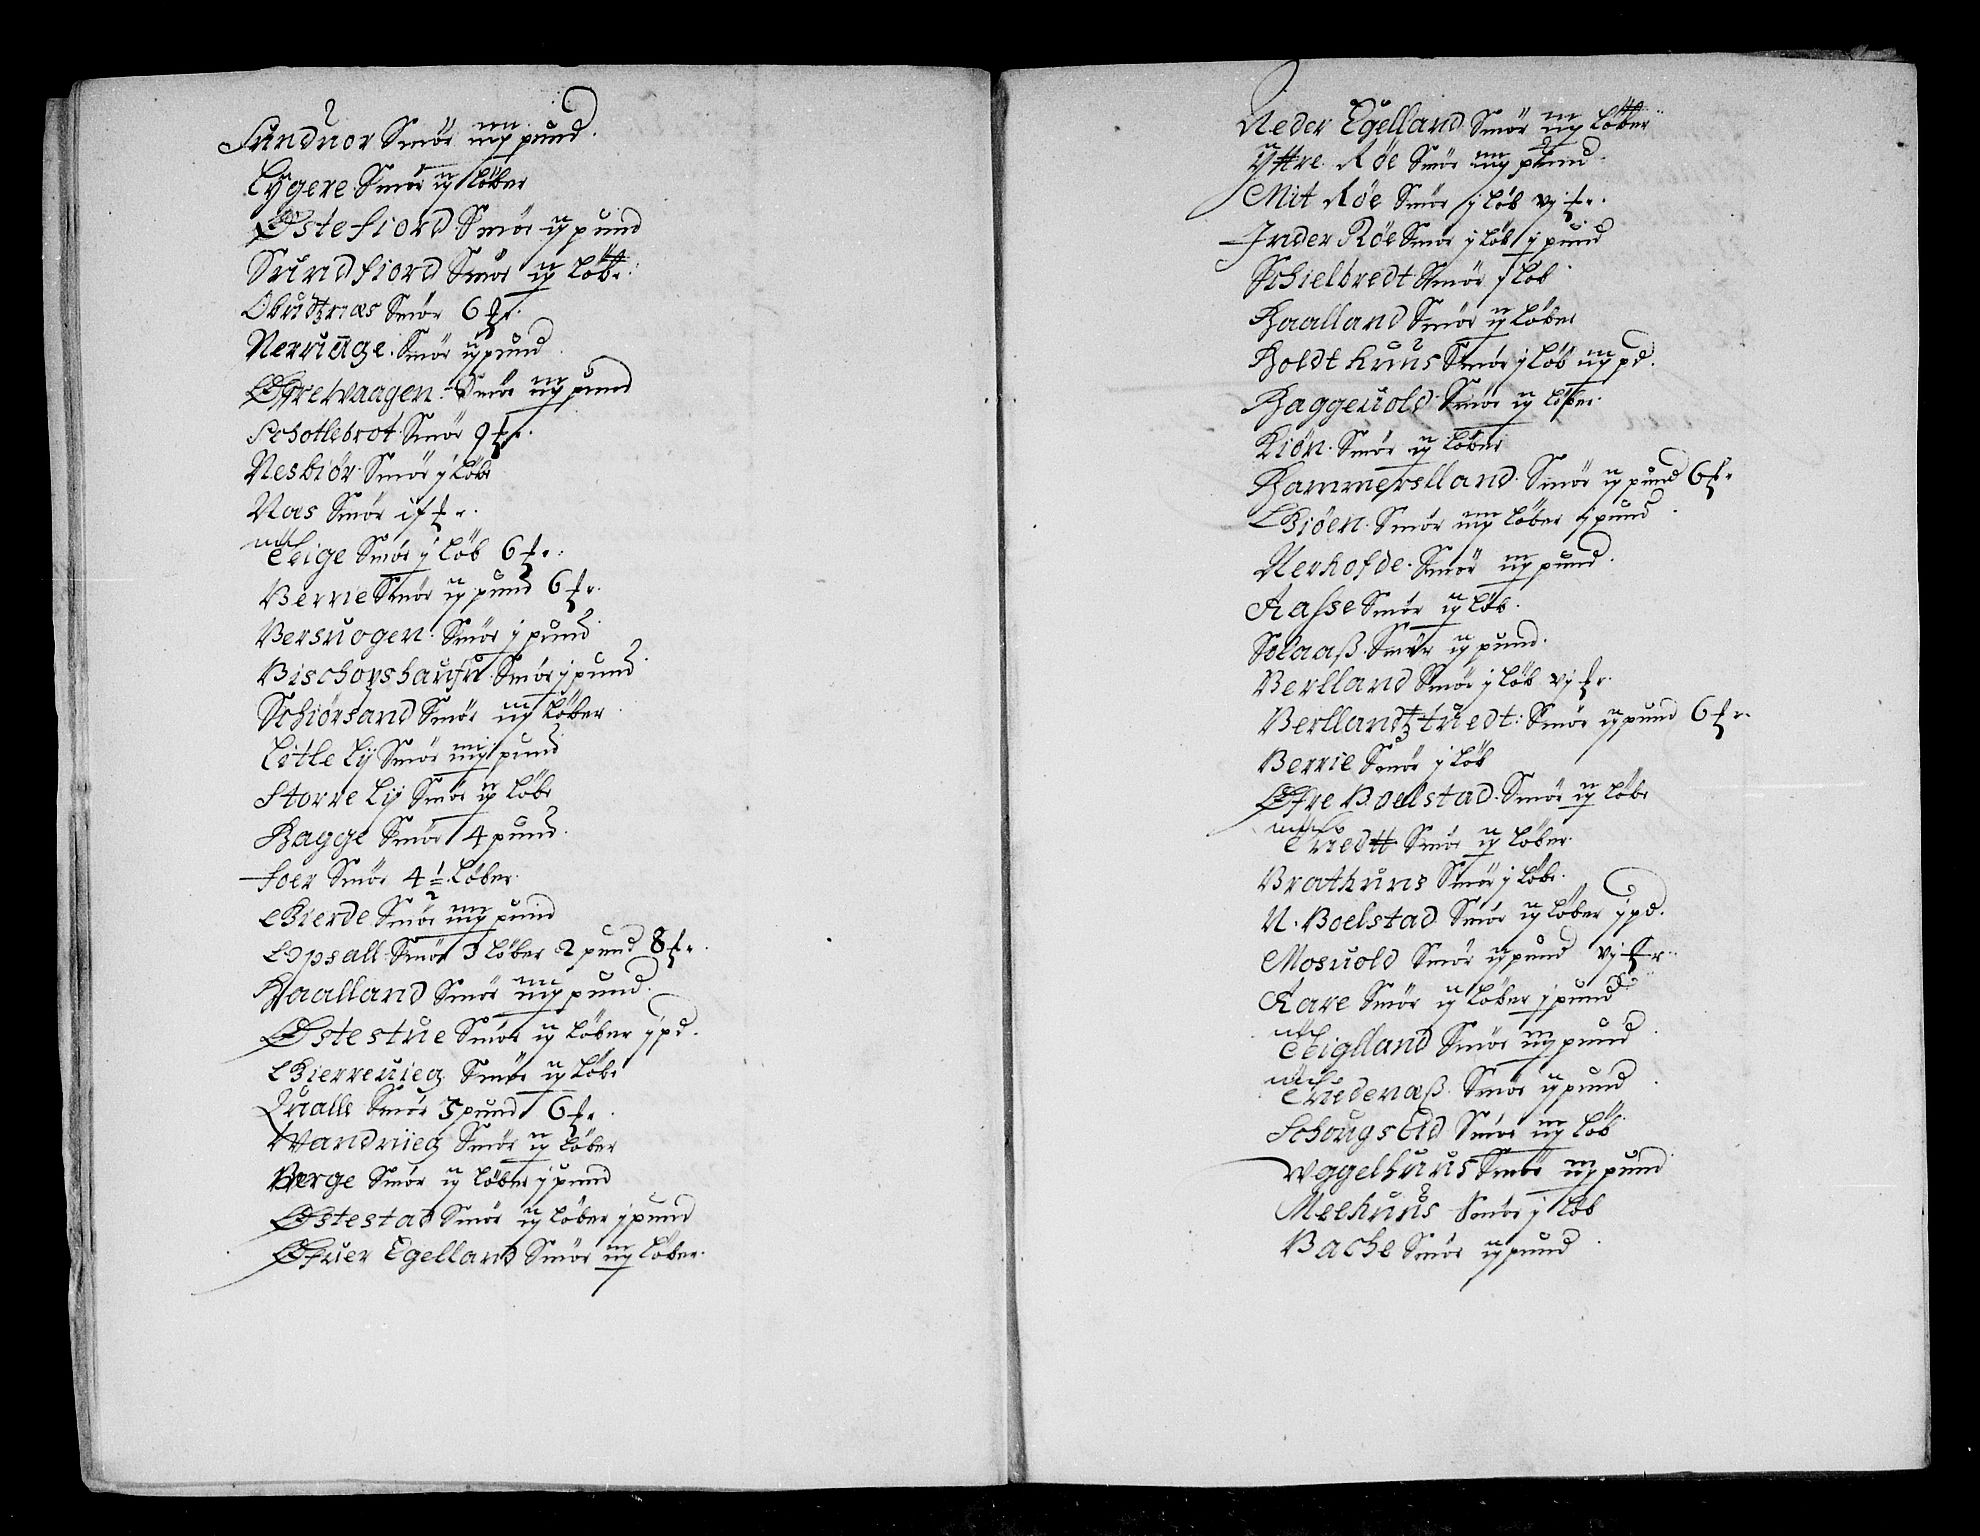 Sunduor Smör iiij pund.
Lygere Smör ij löber
Østefiord Smör ij pund
Sundfiord Smör ij löbr.
Obudtznæs Smör 6 ℔r.
Nerruåge. Smör ij pund
Øfrewaagen. Smör iij pund
Schotlebrot. Smör 9 ℔r.
Nesbiör. Smör j löb
Næs Smör 15 ℔r.
Teige Smör j löb 6 ℔r.
Berrie Smör ij pund 6 ℔r.
Bersuogen. Smör j pund
Bischopshaufn. Smör j pund
Schiörsand Smör iij löber
Litle Lÿ Smör iiij pund
Storre Lÿ Smör ij löbr
Hagge Smör 4 pund.
Foer Smör 4 1/2 löber.
Gierde Smör iiij pund
Opsall Smör 3 löber 2 pund 8 ℔r.
Haalland Smör iiij pund.
Østestue Smör ij löber j pd.
Gierreuieg Smör ij löbr
Qualle Smör 3 pund 6 ℔r.
Wandruieg Smör ij löber
Berge Smör ij löber j pund
Østestad Smör ij löber j pund
Øfuer Egelland Smör iij löber.
Neder Egelland Smör iij löber
Yttre Röe Smör iiij pund
Mit Röe Smör j löb vj ℔r.
Inder Röe Smör j löb j pund
Schielbredt Smör j löb
Haalland Smör ij löber
Holdthuus Smör j löb iij pd.
Haggeuold Smör ij löber.
Kiön. Smör ij löber
Hammerslland. Smör ij pund 6 ℔r
Giöen. Smör iiij löber j pund
Nerhofde. Smör iij pund.
Aasse Smör ij löb.
Solaaß. Smör ij pund.
Berlland Smör j löb vj ℔r.
Berllandtztuedt: Smör ij pund 6 ℔r.
Berrie Smör j löb
Øfre Boelstad. Smör ij löbr
Tuedtt Smör ij löber.
Brathuns Smör j löbr.
N. Boelstad Smör ij löber j pd.
Mosuold Smör ij pund vj ℔r.
Aare Smör ij löber j pund
Teiglland Smör iij pund
Tuedenæß. Smör ij pund
Schougs Eid Smör iij löb
Vggelhuus Smör iij pund
Meehuus Smör j löb
Bache Smör ij pund